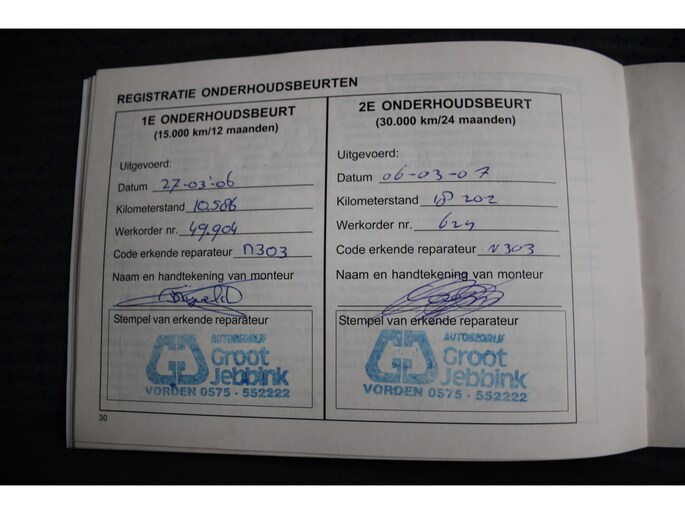 REGISTRATIE ONDERHOUDSBEURTEN
1E ONDERHOUDSBEURT
(15.000 km/12 maanden)
Uitgevoerd:
Datum 27-03-06
Kilometerstand 10.586
Werkorder nr. 49.904
Code erkende reparateur N303
Naam en handtekening van monteur
Stempel van erkende reparateur
AUTOBEDRIJF
Groot
Jebbink
VORDEN 0575 - 552222
2E ONDERHOUDSBEURT
(30.000 km/24 maanden)
Uitgevoerd:
Datum 06-03-07
Kilometerstand 18 202
Werkorder nr.
Code erkende reparateur N303
Naam en handtekening van monteur
Stempel van erkende reparateur
AUTOBEDRIJF
Groot
Jebbink
VORDEN 0575 - 552222
30